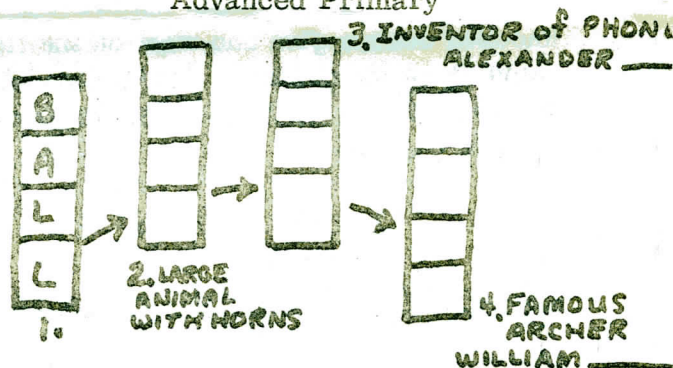 Advanced Primary
3. INVENTOR of PHON
ALEXANDER
B
A
L
L
1.
2. LARGE
ANIMAL
WITH HORNS
4. FAMOUS
ARCHER
WILLIAM